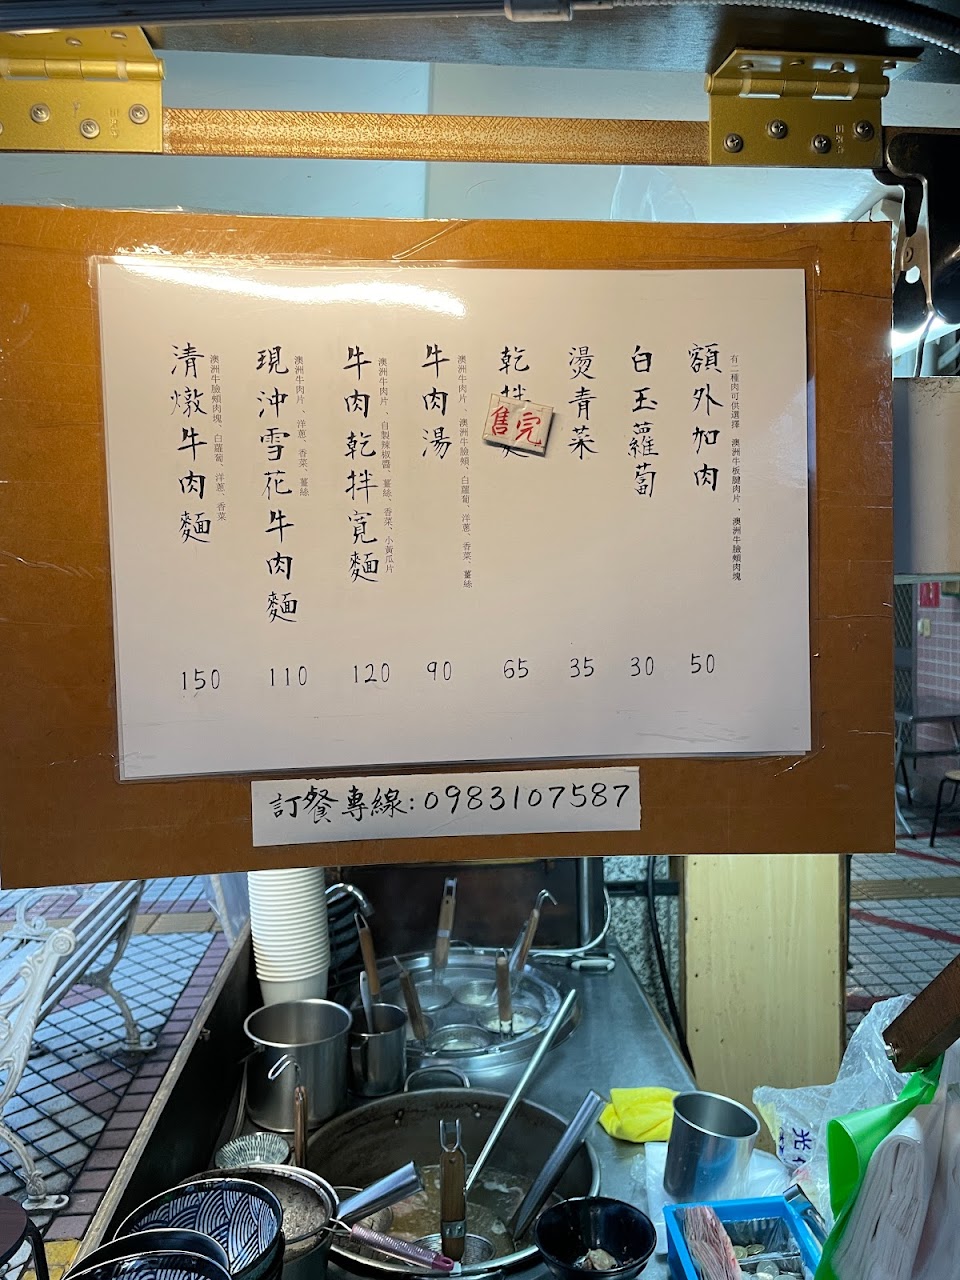 清燉牛肉麵
澳洲牛臉頰肉塊、白蘿蔔、洋蔥、香菜
150
現沖雪花牛肉麵
澳洲牛肉片、洋蔥、香菜、薑絲
110
牛肉乾拌寬麵
澳洲牛肉片、自製辣椒醬、薑絲、香菜、小黃瓜片
120
牛肉湯
澳洲牛肉片、澳洲牛臉頰、白蘿蔔、洋蔥、香菜、薑絲
90
乾拌
售完
65
燙青菜
35
白玉蘿蔔
30
額外加肉
有二種肉可供選擇 澳洲牛板腱肉片、澳洲牛臉頰肉塊
50
訂餐專線:0983107587
光